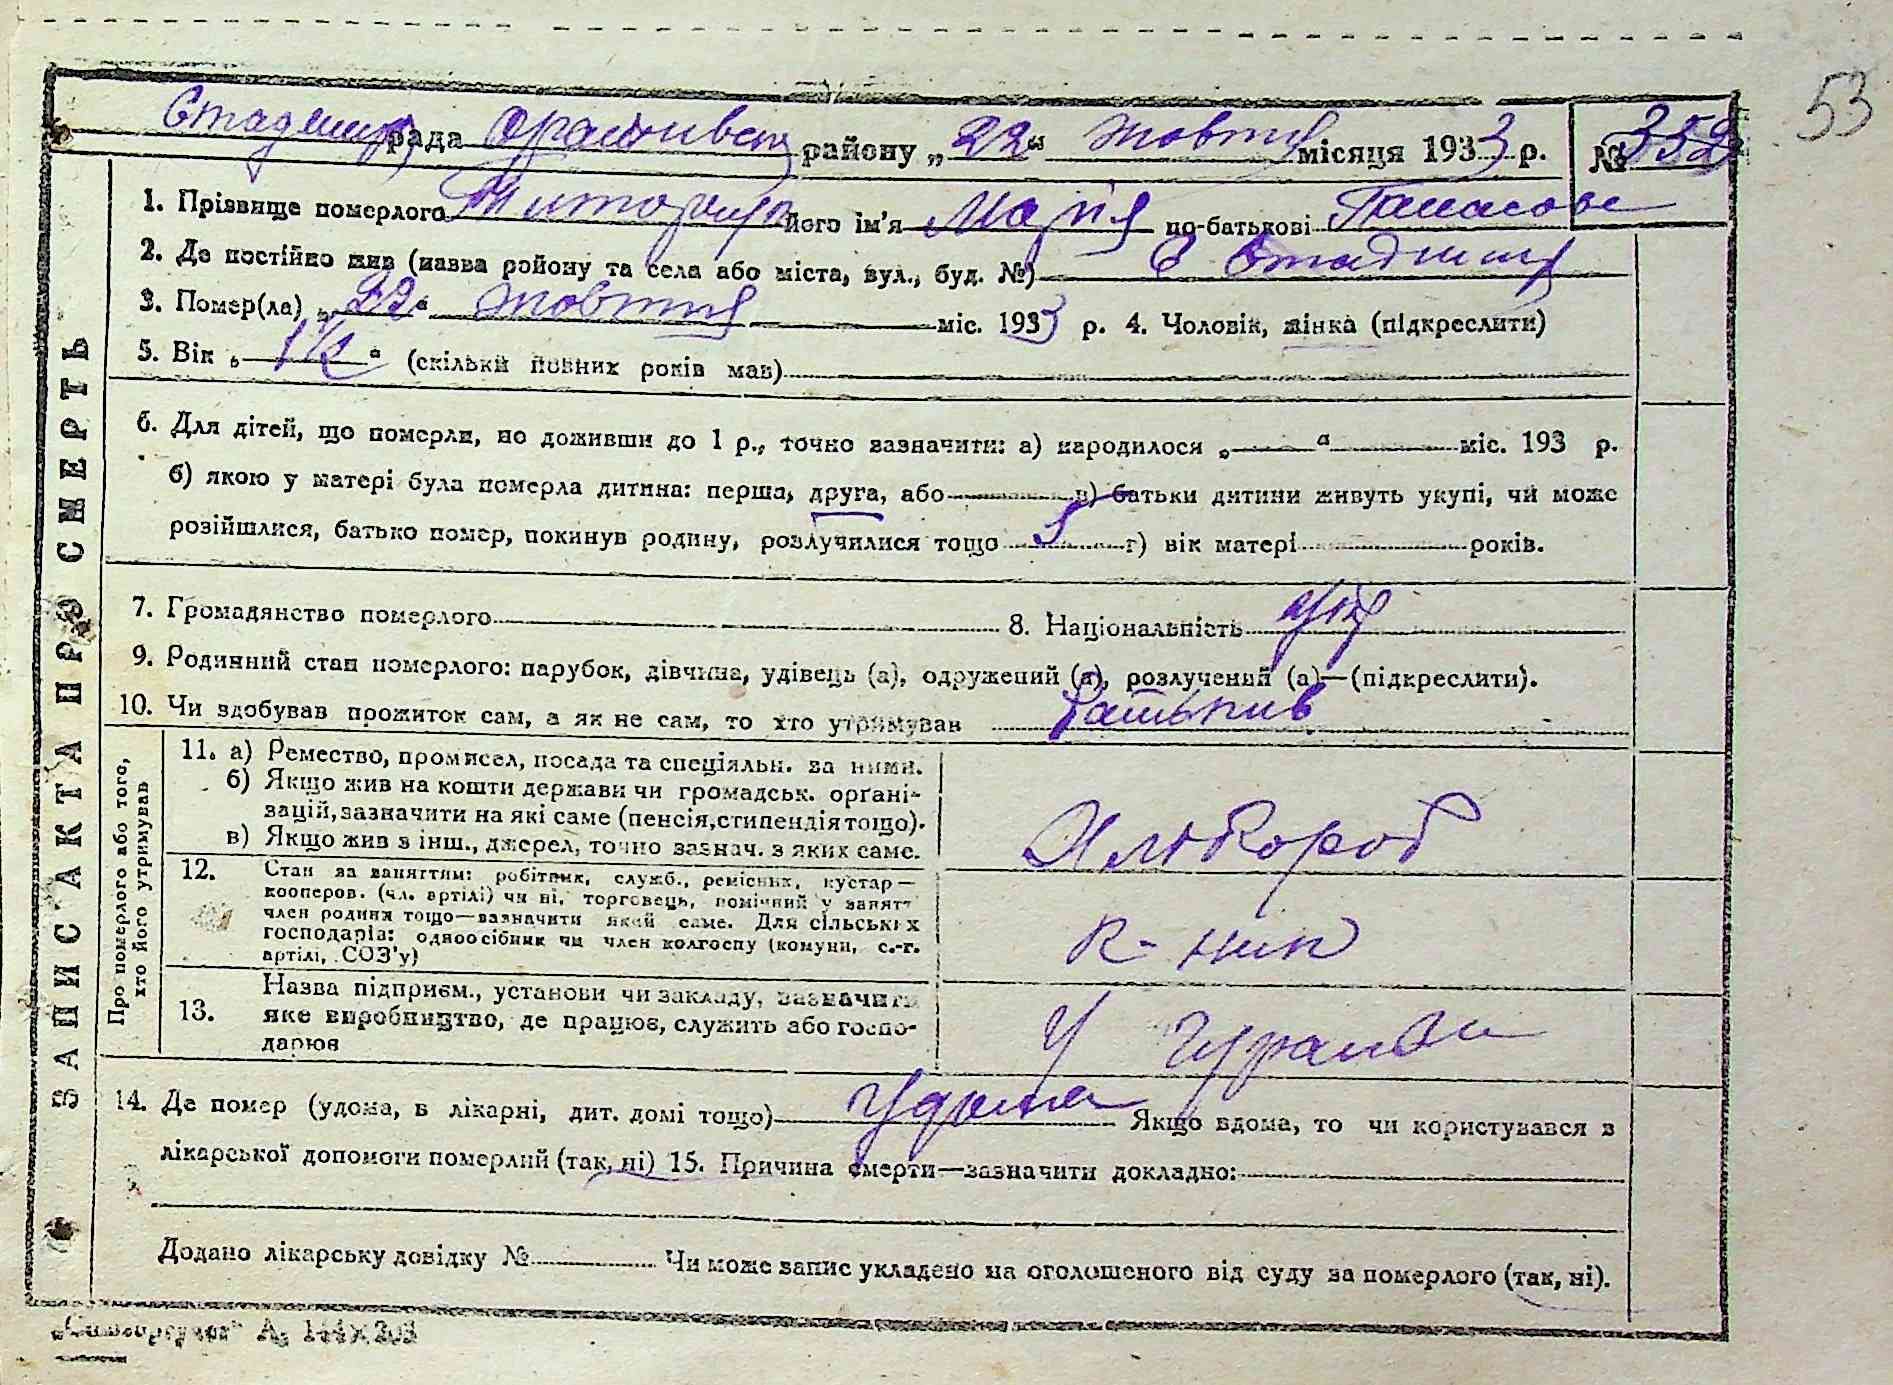 53
Стадниц. рада Оратівськ району „22“ жовтня місяця 1933 р. № 352
1. Прізвище померлого його ім'я Марія по-батькові Панасова
2. Де постійно жив (назва району та села або міста, вул., буд. №) с Стадниця
3. Помер(ла) „22“ жовтня міс. 1933 р. 4. Чоловік, жінка (підкреслити)
5. Вік „1½“ (скільки повних років мав)
6. Для дітей, що померли, но доживши до 1 р., точно зазначити: а) народилося „ “ міс. 193 р.
б) якою у матері була померла дитина: перша, друга, або в) батьки дитини живуть укупі, чи може
розійшлися, батько помер, покинув родину, розлучилися тощо г) вік матері років.
7. Громадянство померлого 8. Національність укр
9. Родинний стан померлого: парубок, дівчина, удівець (а), одружений (а), розлучений (а)—(підкреслити).
10. Чи здобував прожиток сам, а як не сам, то хто утримував
ЗАПИСКА ПРО СМЕРТЬ
Про померлого або того, хто його утримував
11. а) Ремество, промисел, посада та спеціяльн. за ними.
б) Якщо жив на кошти держави чи громадськ. орґані-
зацій, зазначити на які саме (пенсія, стипендія тощо).
в) Якщо жив з інш., джерел, точно зазнач. з яких саме.
Хлібороб
12. Стан за заняттям: робітник, служб., ремісник, кустар—
кооперов. (чл. артілі) чи ні, торговець, помічний у занятт
член родини тощо—зазначити який саме. Для сільських
господарів: одноосібник чи член колгоспу (комуни, с.-г.
артілі, СОЗ'у)
К-ник
13. Назва підприєм., установи чи закладу, зазначити
яке виробництво, де працює, служить або госпо-
дарює
У
14. Де помер (удома, в лікарні, дит. домі тощо) Удома Якщо вдома, то чи користувався в
лікарської допомоги померлий (так, ні) 15. Причина смерти—зазначити докладно:
Додано лікарську довідку № Чи може запис укладено на оголошеного від суду за померлого (так, ні).